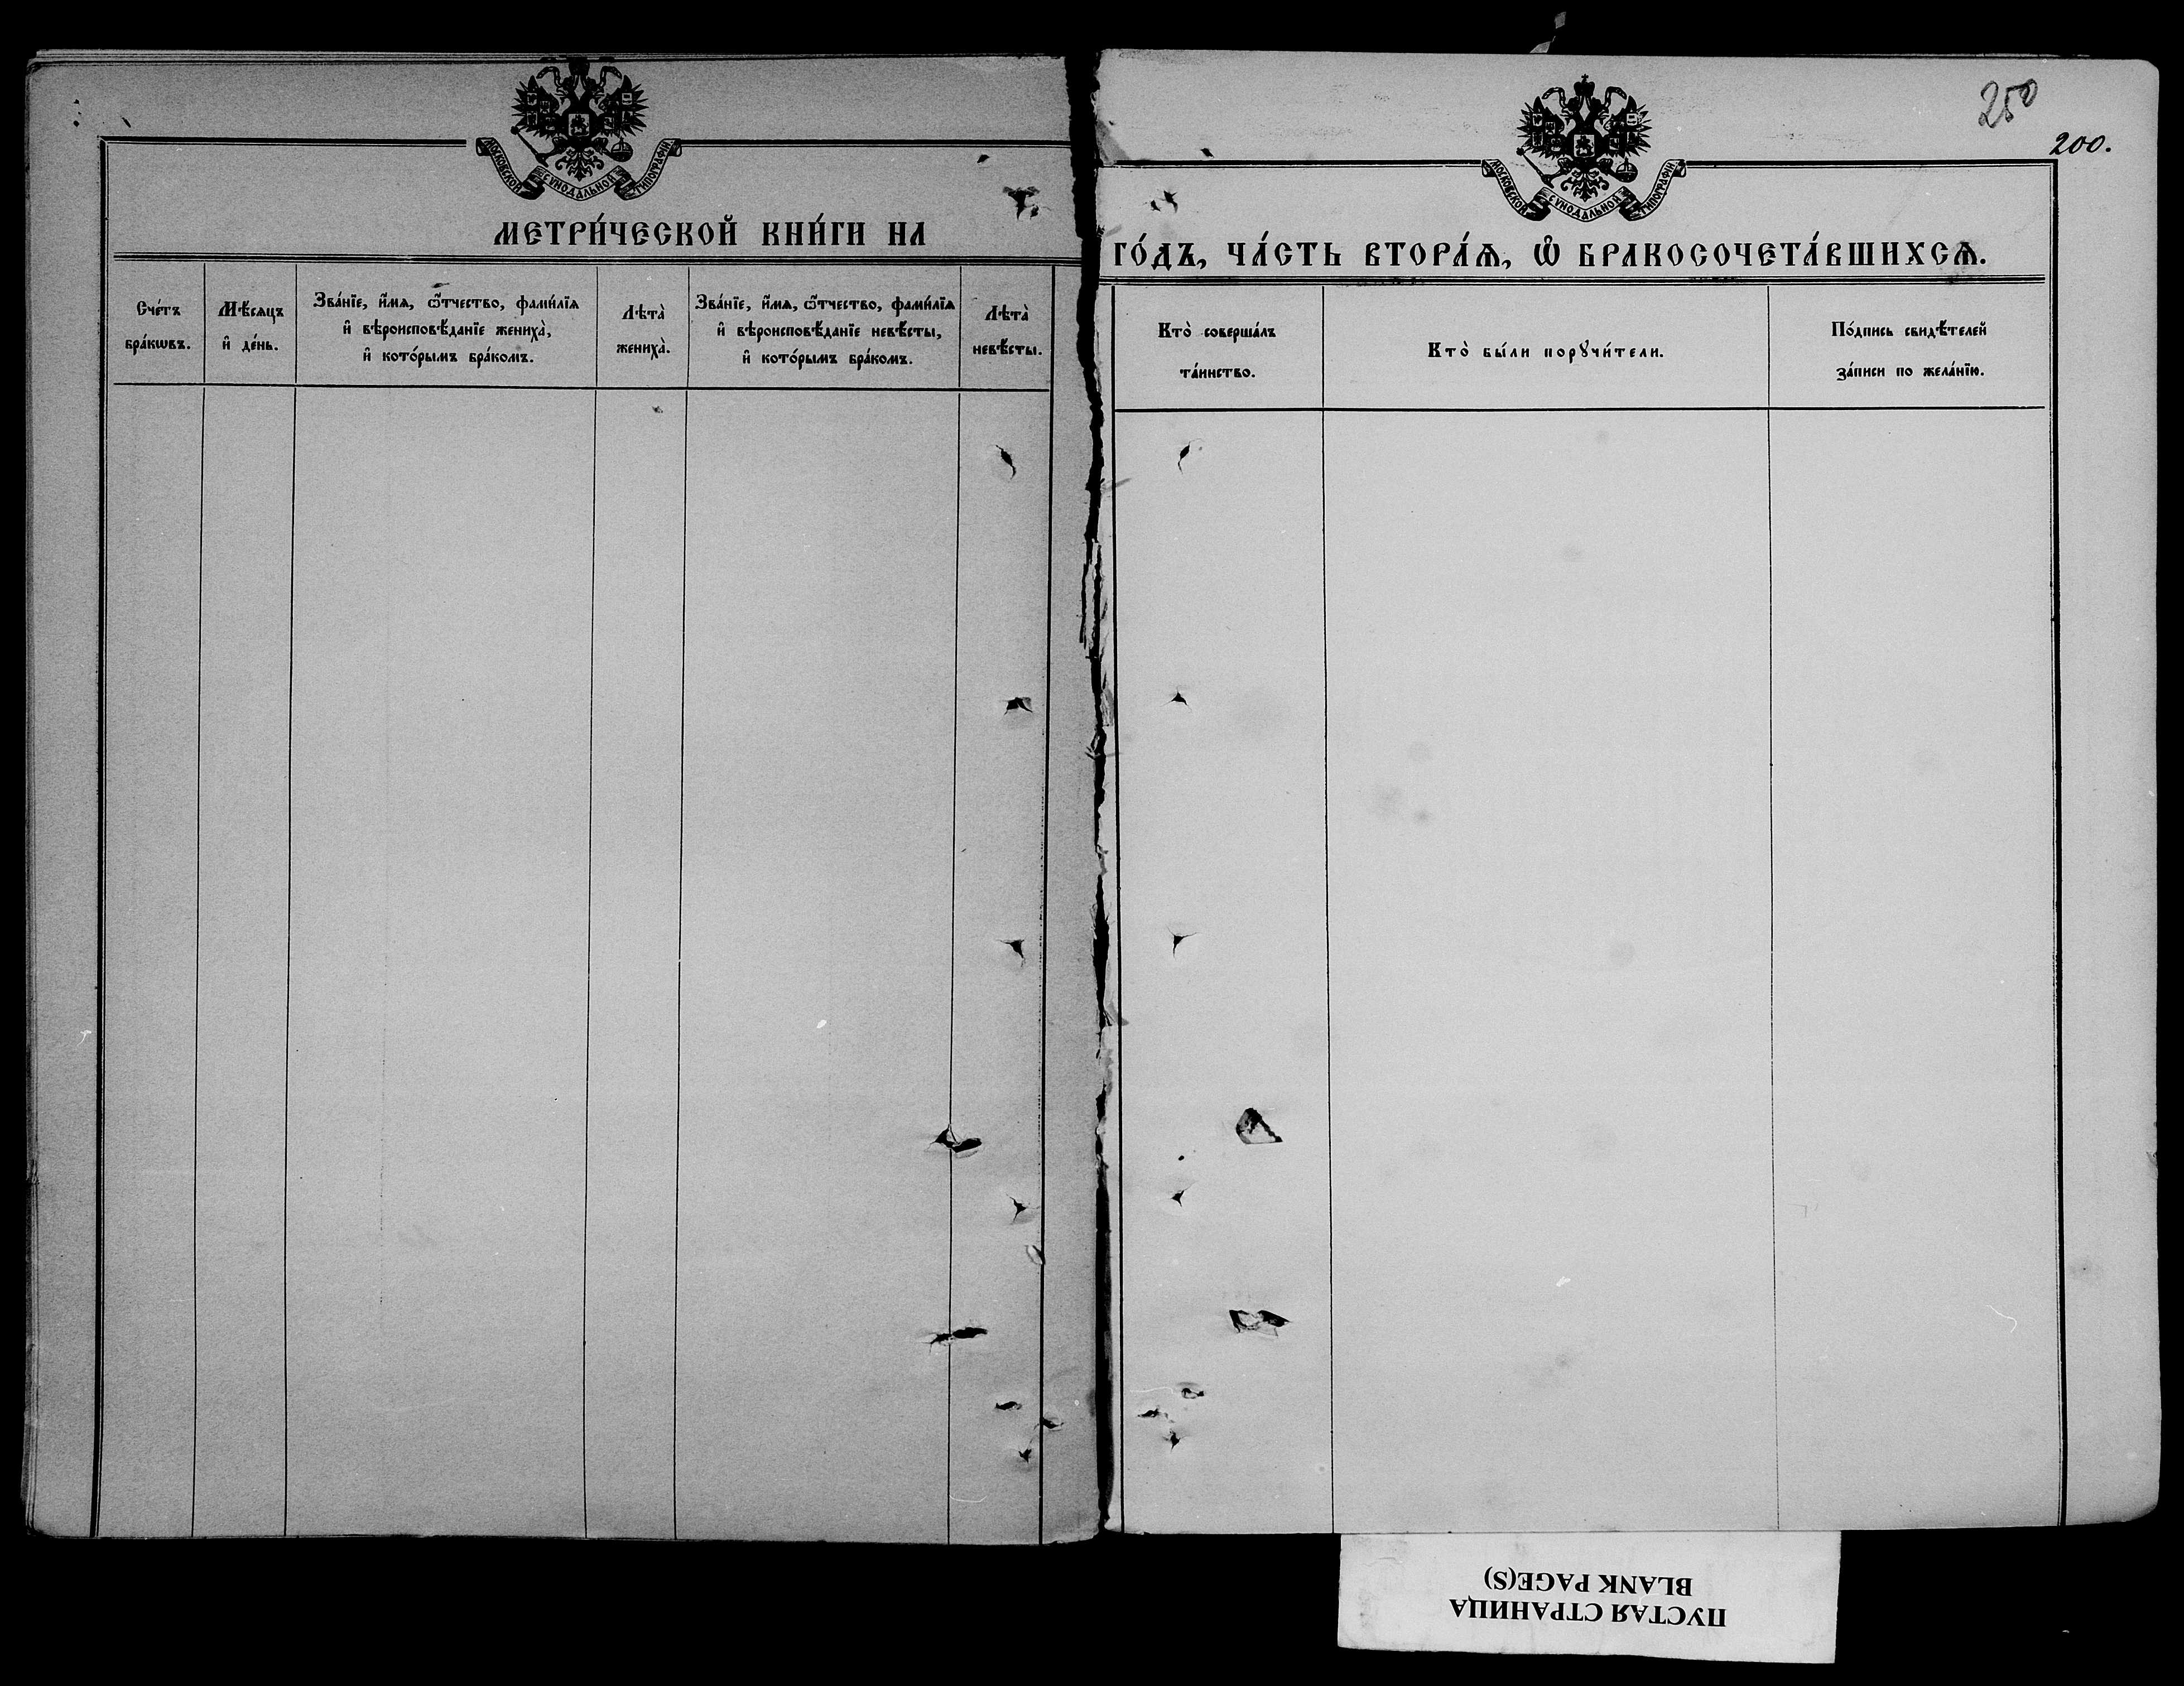 МОСКОВСКОЙ СѴНОДАЛЬНОЙ ТИПОГРАФІИ
МЕТРИ́ЧЕСКОЙ КНИ́ГИ НА
Сче́тъ
бра́кωвъ.
Мѣ́сяцъ
и҆ де́нь.
Зва́нїе, и҆́мя, ѻ҆́тчество, фами́лїя
и҆ вѣроисповѣ́данїе жениха̀,
и҆ кото́рымъ бра́комъ.
Лѣта̀
жениха̀.
Зва́нїе, и҆́мя, ѻ҆́тчество, фами́лїя
и҆ вѣроисповѣ́данїе невѣ́сты,
и҆ кото́рымъ бра́комъ.
Лѣта̀
невѣ́сты.
250
200.
МОСКОВСКОЙ СѴНОДАЛЬНОЙ ТИПОГРАФІИ
ГО́ДЪ, ЧА́СТЬ ВТОРА́Ѧ, Ѽ БРАКОСОЧЕТА́ВШИХСѦ.
Кто̀ соверша́лъ
та́инство.
Кто̀ бы́ли порꙋчи́тели.
По́дпись свидѣ́телей
за́писи по жела́нїю.
ПУСТАЯ СТРАНИЦА
BLANK PAGE(S)